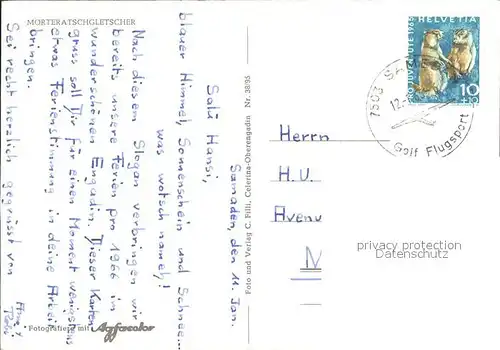 MORTERATSCHGLETSCHER
Samaden, den 11. Jan.
Salü Hansi,
blauer Himmel, Sonnenschein und Schnee...
was wotsch nameh!
Nach diesem Slogan verbringen wir
bereits unsere Ferien pro 1966 im
wunderschönen Engadin. Dieser Karten-
gruss soll Dir für einen Moment wenigstens
etwas Ferienstimmung in deine Arbeit
bringen.
Sei recht herzlich gegrüsst von
Fotografiert mit Agfacolor
Foto und Verlag C. Filli, Celerina-Oberengadin Nr. 38/95
HELVETIA
PRO JUVENTUTE 1965
10
+10
7503 SAMED
12.
Golf Flugsport
Herrn
H. U.
Avenu
M
privacy protection
Datenschutz